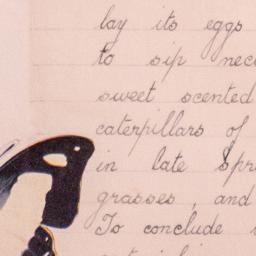 lay its eggs
to sip
sweet scented
caterpillars of
in late
grasses, and
To conclude